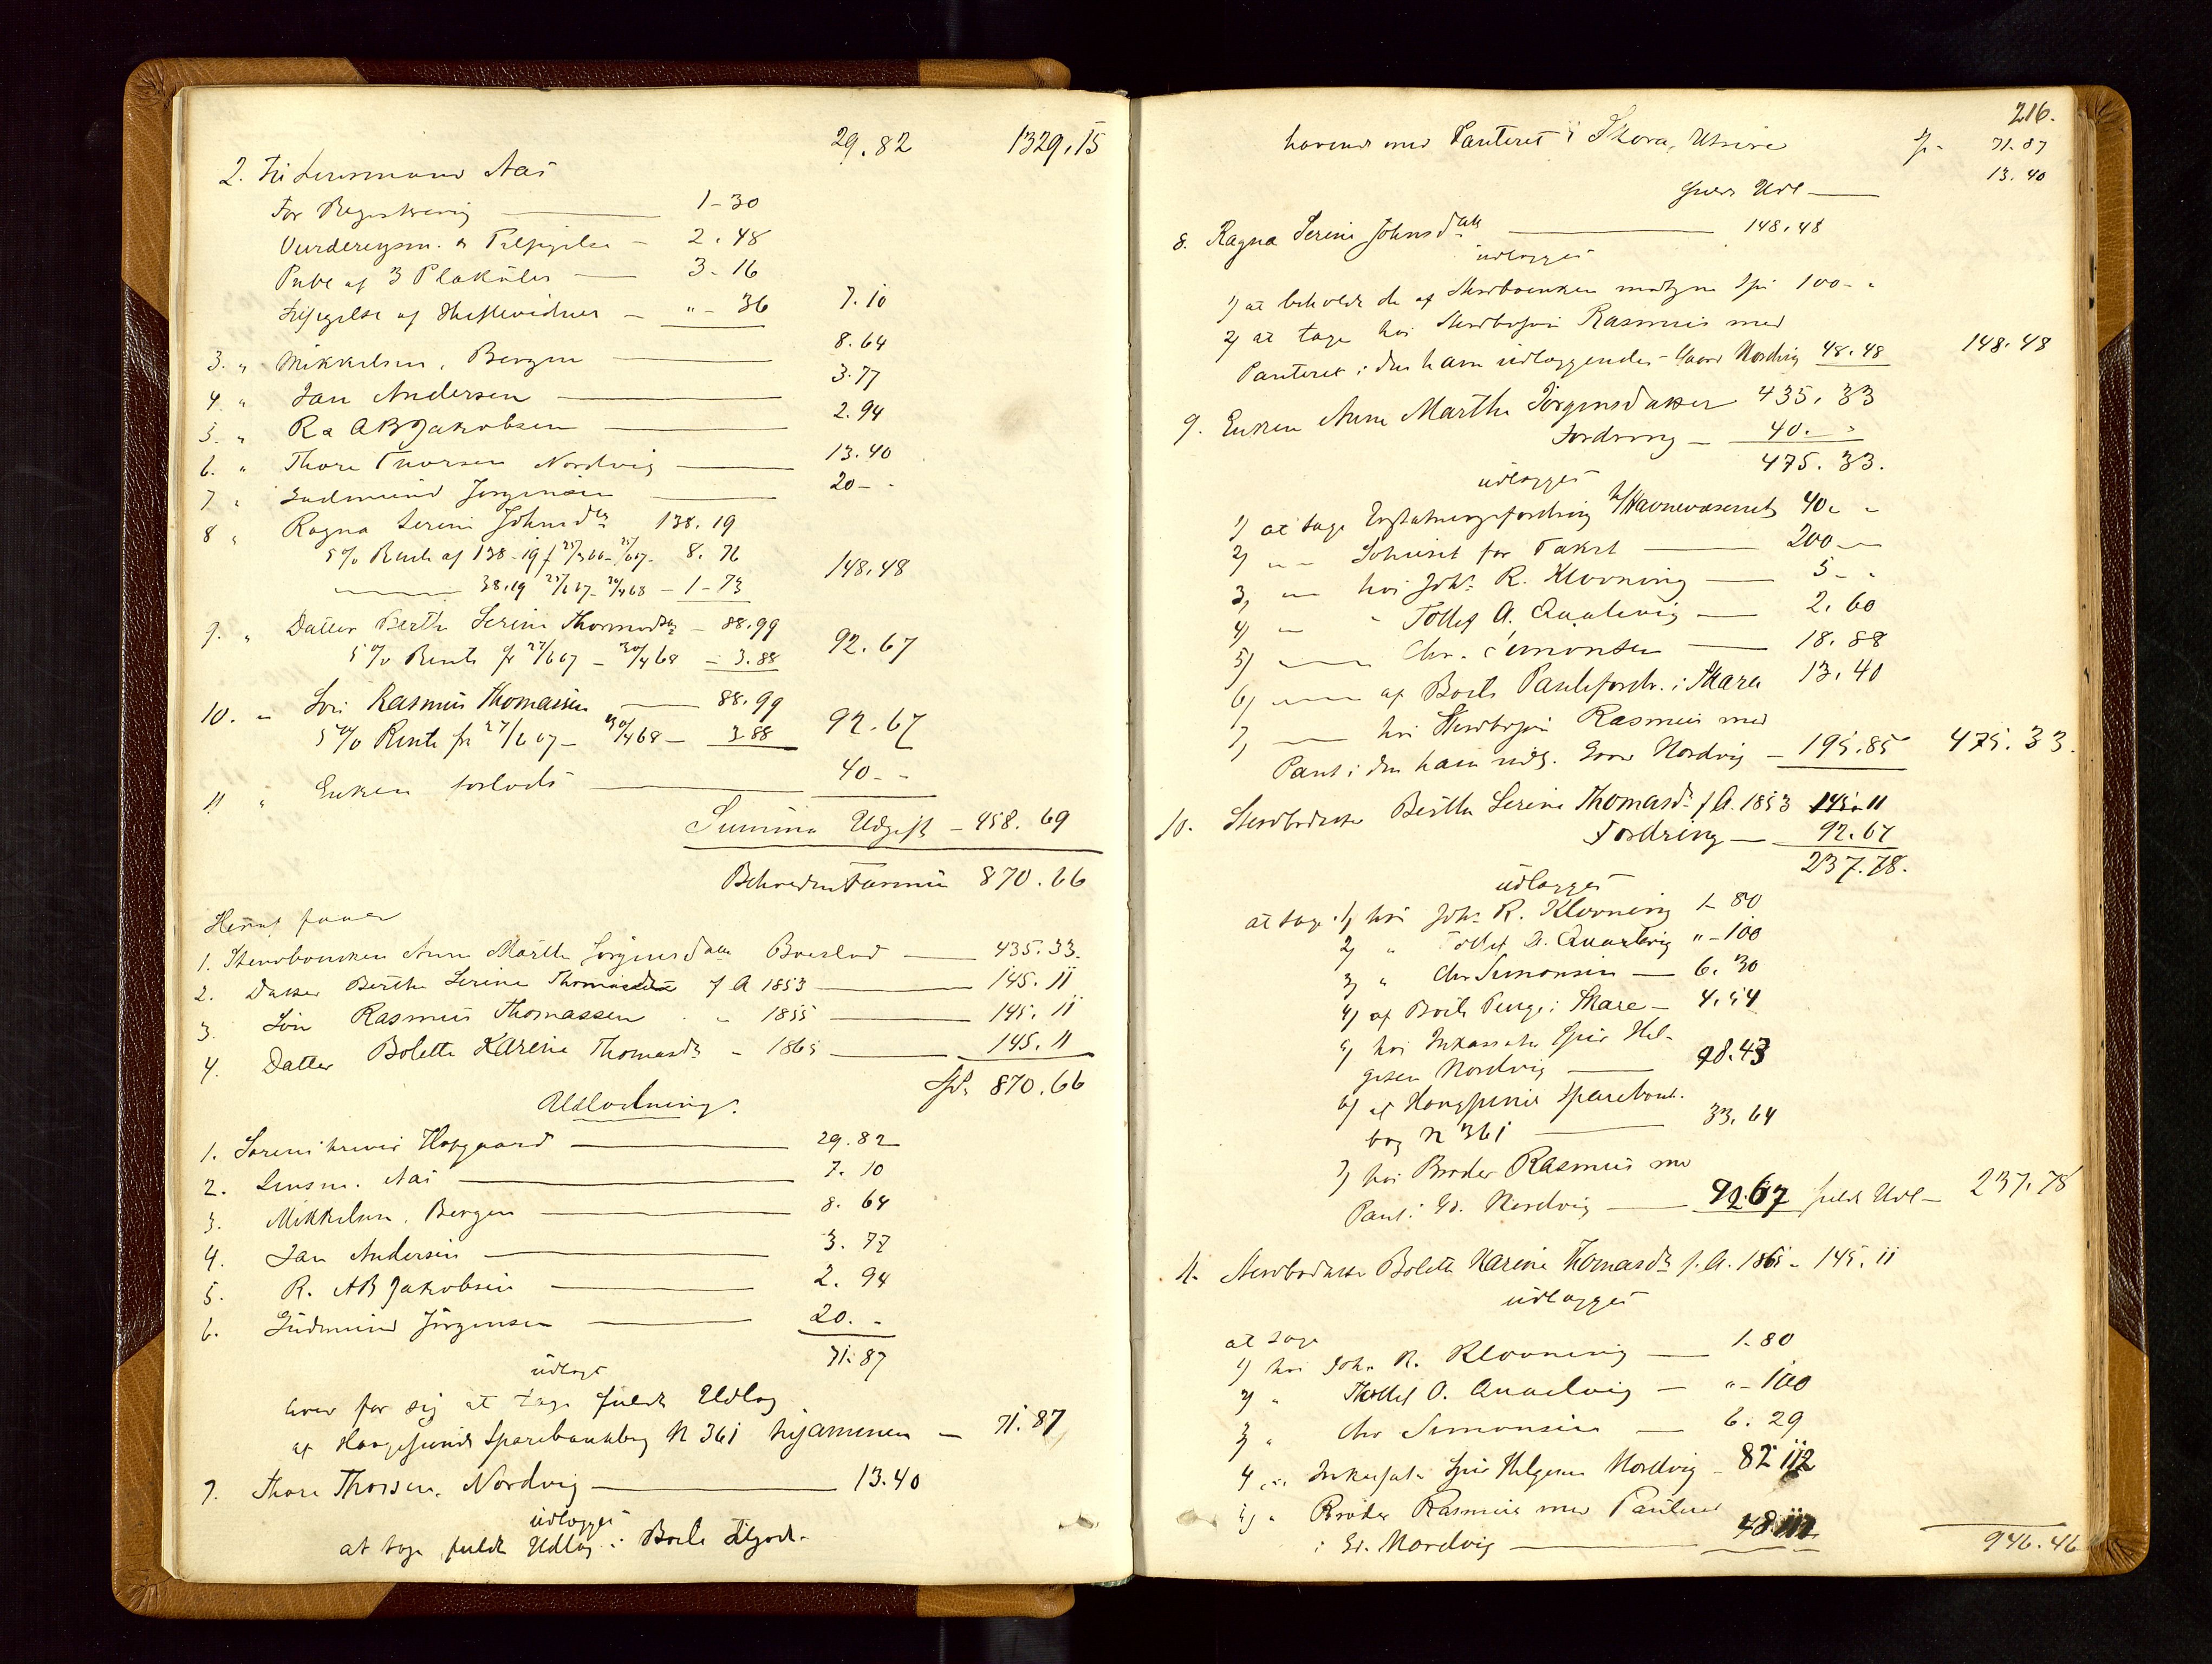 29.82 1329.15
2. Til Lensmand Aas
For Registrering 1-30
Vurderingsm. & Tilsigelse - 2.48
Publ af 3 Plakater 3-16
Tilsigelse af Skiftevidner - " - 36 7.10
3. " Mikkelsen, Bergen 8.64
4 " Jan Andersen 3.77
5. " R & AB Jakobsen 2.94
6. " Thore Thorsen Nordvig 13.40
7 " Gudmund Jørgensen 20 - -
8 " Ragna Serine Johnsdtr 138.19
5% Rente af 138-19 f 8.76
38.19 - 1-73 148.48
9. " Datter Berthe Serine Thomasdtr - 88.99
5% Rente fr 27/6 67 - 30/4 68 - 3.88 92.67
10. " Søn Rasmus Thomassen 88.99
5% Rente fr 27/6 67 - 30/4 68 - 3.88 92.67
11 " Enken forlods 40 - -
Summa Udgift - 458.69
Beholden Formue 870.66
Heraf faaer
1. Stervboenken Anne Marthe Jørgensdatter Boeslod 435.33.
2. Datter Berthe Serine Thomasdtr f A 1853 145.11
3. Søn Rasmus Thomassen " 1855 145.11
4. Datter Bolette Karine Thomasdtr " 1865 145.11
Spd. 870.66
Udlodning.
1. Sorenskriver Hofgaard 29.82
2. Lensm. Aas 7.10
3. Mikkelsen, Bergen 8.64
4. Jan Andersen 3.77
5. R. AB Jakobsen 2.94
6. Gudmund Jørgensen 20. -
71.87
udlagt
hver for sig at tage fuldt Udlæg
af Haugesunds Sparebankbog N 361 tilsammen - 71.87
7. Thore Thorsen, Nordvig 13.40
udlægges
at tage fuldt Udlæg i Boets Tilgode-
216.
havende med Panteret i Skara, Utsire 71.87
fuldt Udl 13.40
8. Ragna Serine Johnsdatter 148.48
udlægges
1) at beholde de af Stervboenken modtagne Spd 100 - "
2) at tage hos Stervbosøn Rasmus med
Panteret i den ham udlæggendes Gaard Nordvig 48.48 148.48
9. Enken Anne Marthe Jørgensdatter 435.33
Fordring - 40. "
475.33.
udlægges
1) at tage Erstatningsfordring h/Havnevæsenet 40. "
2) " " for Takst 200 -
3) " hos Joh. R. Klovning 5 - "
4) " " Tollef A. Qualevig 2.60
5) Chr. Simonsen 18.88
6) af Boets Pantefordr. i Skara 13.40
7) hos Stervbosøn Rasmus med
Pant i den ham udl. Gaar Nordvig - 195.85 475.33.
10. Stervbodatter Berthe Serine Thomasdr f A. 1853 145.11
Fordring 92.67
237.78.
udlægges
at tage 1) hos Joh. R. Klovning 1-80
2) " Tollef A. Qualevig " - 100
3) " Chr Simonsen 6.30
4) af Boets Penge i Skare - 4.54
5) hos Inkassator Sjur Hel-
gesen Nordvig 98.43
6) af Haugesunds Sparebank-
bog N 361 33.64
7) hos Broder Rasmus me
Pant i Gd. Nordvig 92.67 fuldt Udl - 237.78
11. Stervbodatter Bolette Karine Thomasdr f. A. 1865 - 145.11
udlægges
at tage
1) hos Joh. R. Klovning 1-80
2) " Tollef O. Qualevig " - 100
3) " Chr Simonsen 6.29
4 " Inkassat. Sjur Helgesen Nordvig - 82
5) " Broder Rasmus med Panteret
i Gd. Nordvig 48
946.46